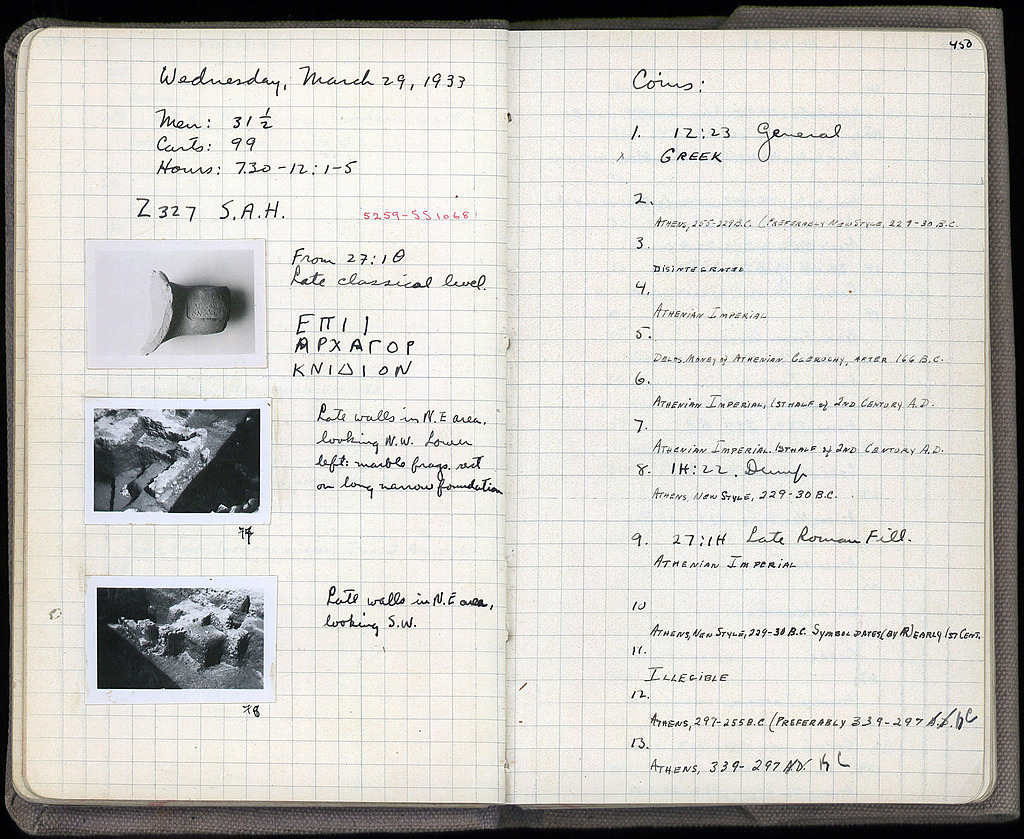 Wednesday, March 29, 1933
Men: 31 ½
Carts: 99
Hours: 7.30-12: 1-5
Z 327 S.A.H.
5259-SS1068
From 27:1Θ
Late classical level.
ΕΠΙ Ι
ΑΡΧΑΓΟΡ
ΚΝΙΔΙΟΝ
Late walls in N.E area,
looking N.W. Lower
left: marble frags. rest
on long narrow foundation
Late walls in N.E area,
looking S.W.
78
450
Coins:
1. 12:23 General
x GREEK
2.
ATHENS, 255-229 B.C. (PREFERABLY NEW STYLE, 229-30 B.C.
3.
DISINTEGRATED
4.
ATHENIAN IMPERIAL
5.
DELOS, MONEY of ATHENIAN CLERUCHY, AFTER 166 B.C.
6.
ATHENIAN IMPERIAL, 1ST HALF of 2ND CENTURY A.D.
7.
ATHENIAN IMPERIAL. 1ST HALF of 2ND CENTURY A.D.
8. 1H:22. Dump
ATHENS, NEW STYLE, 229-30 B.C.
9. 27:1H Late Roman Fill.
ATHENIAN IMPERIAL
10
ATHENS, NEW STYLE, 229-30 B.C. SYMBOL DATES (BY AR) EARLY 1ST CENT.
11.
ILLEGIBLE
12.
ATHENS, 297-255 B.C (PREFERABLY 339-297 A.D. BC
13.
ATHENS, 339-297 A.D. BC